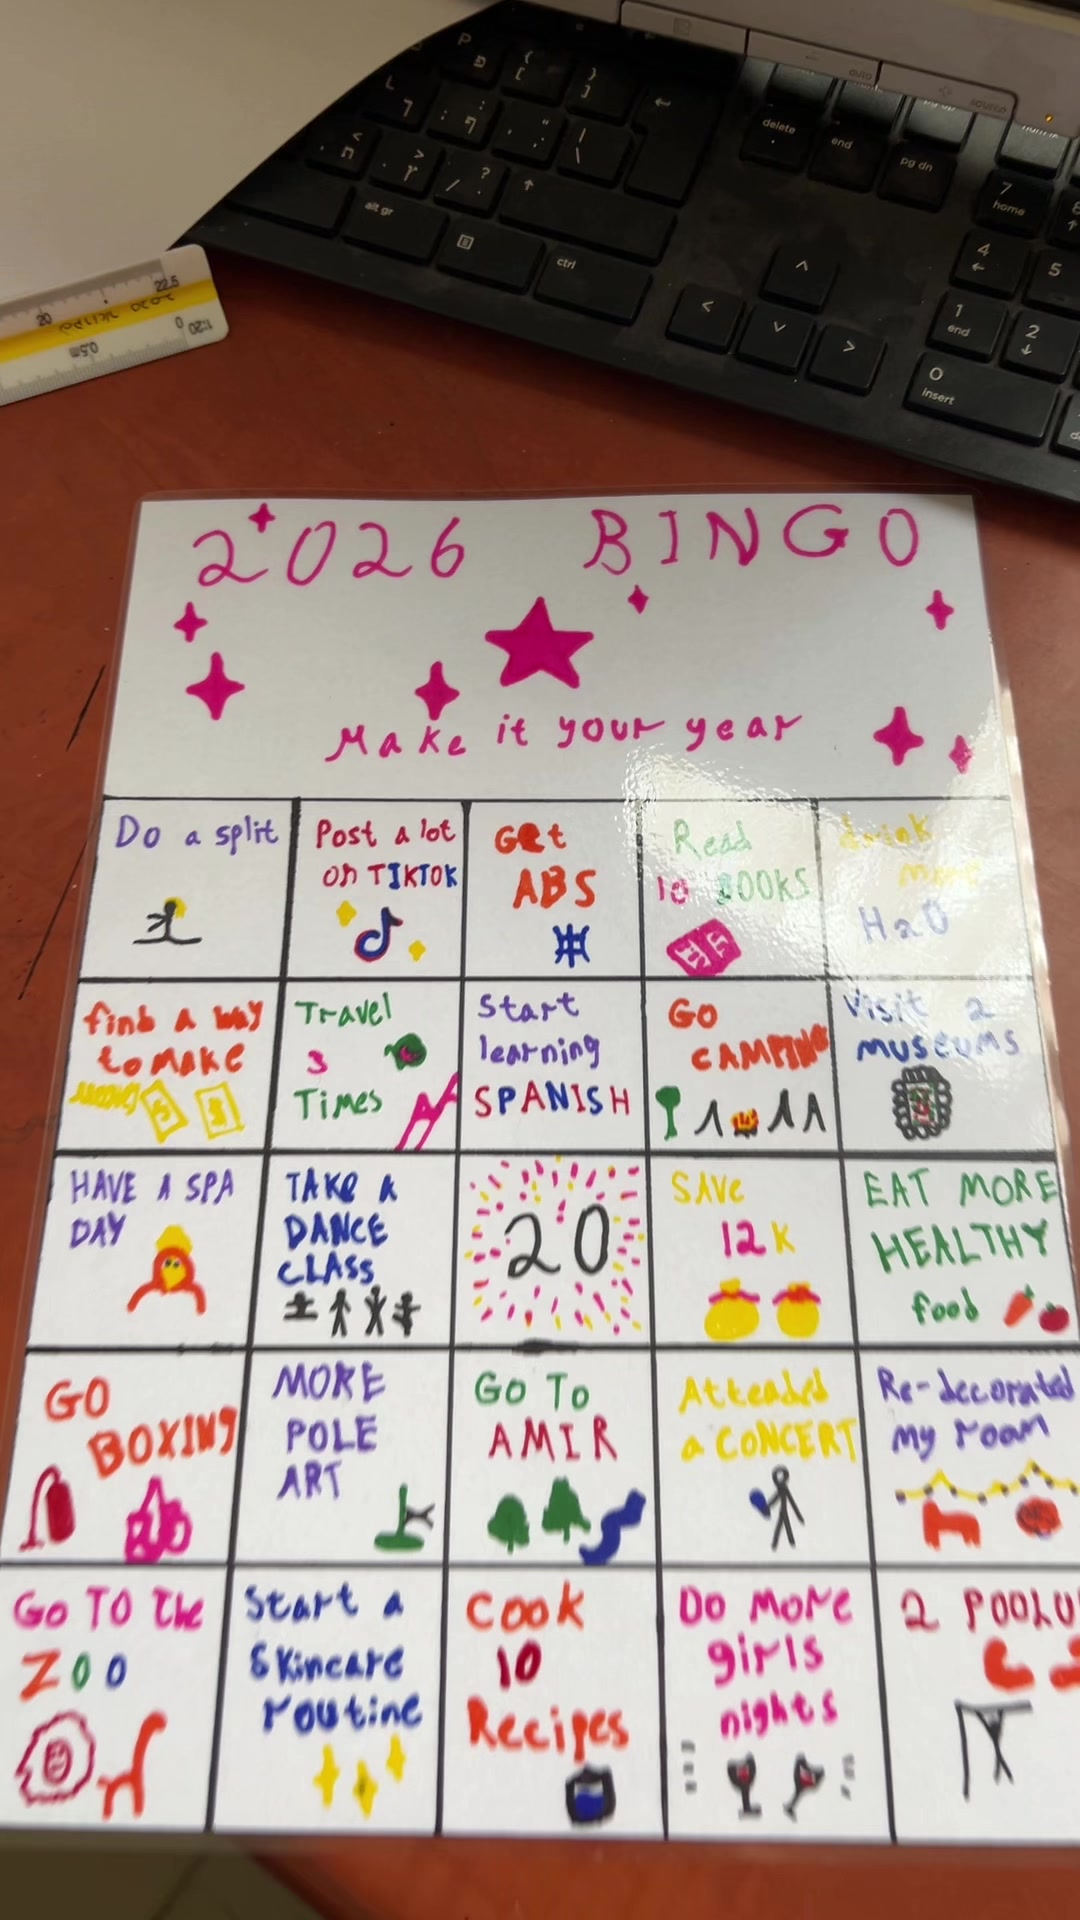 P
פ
{
[
}
]
L
ך
:
;
ף
"
'
,
|
\
<
ת
>
.
ץ
?
/
alt gr
ctrl
delete
end
pg dn
auto
source
7
home
4
5
1
end
2
0
insert
22.5
20
0
1:20
0.5m
2026 BINGO
Make it your year
Do a split
Post a lot
on TIKTOK
Get
ABS
Read
10 BOOKS
drink
more
H2O
find a way
to make
money
Travel
3
Times
Start
learning
SPANISH
GO
CAMPING
Visit 2
museums
HAVE A SPA
DAY
TAKe A
DANCE
CLASS
20
SAVe
12K
EAT MORE
HEALTHY
food
GO
BOXING
MORE
POLE
ART
GO TO
AMIR
Attended
a CONCERT
Re-decorated
my room
Go TO the
ZOO
Start a
Skincare
routine
Cook
10
Recipes
Do More
girls
nights
2